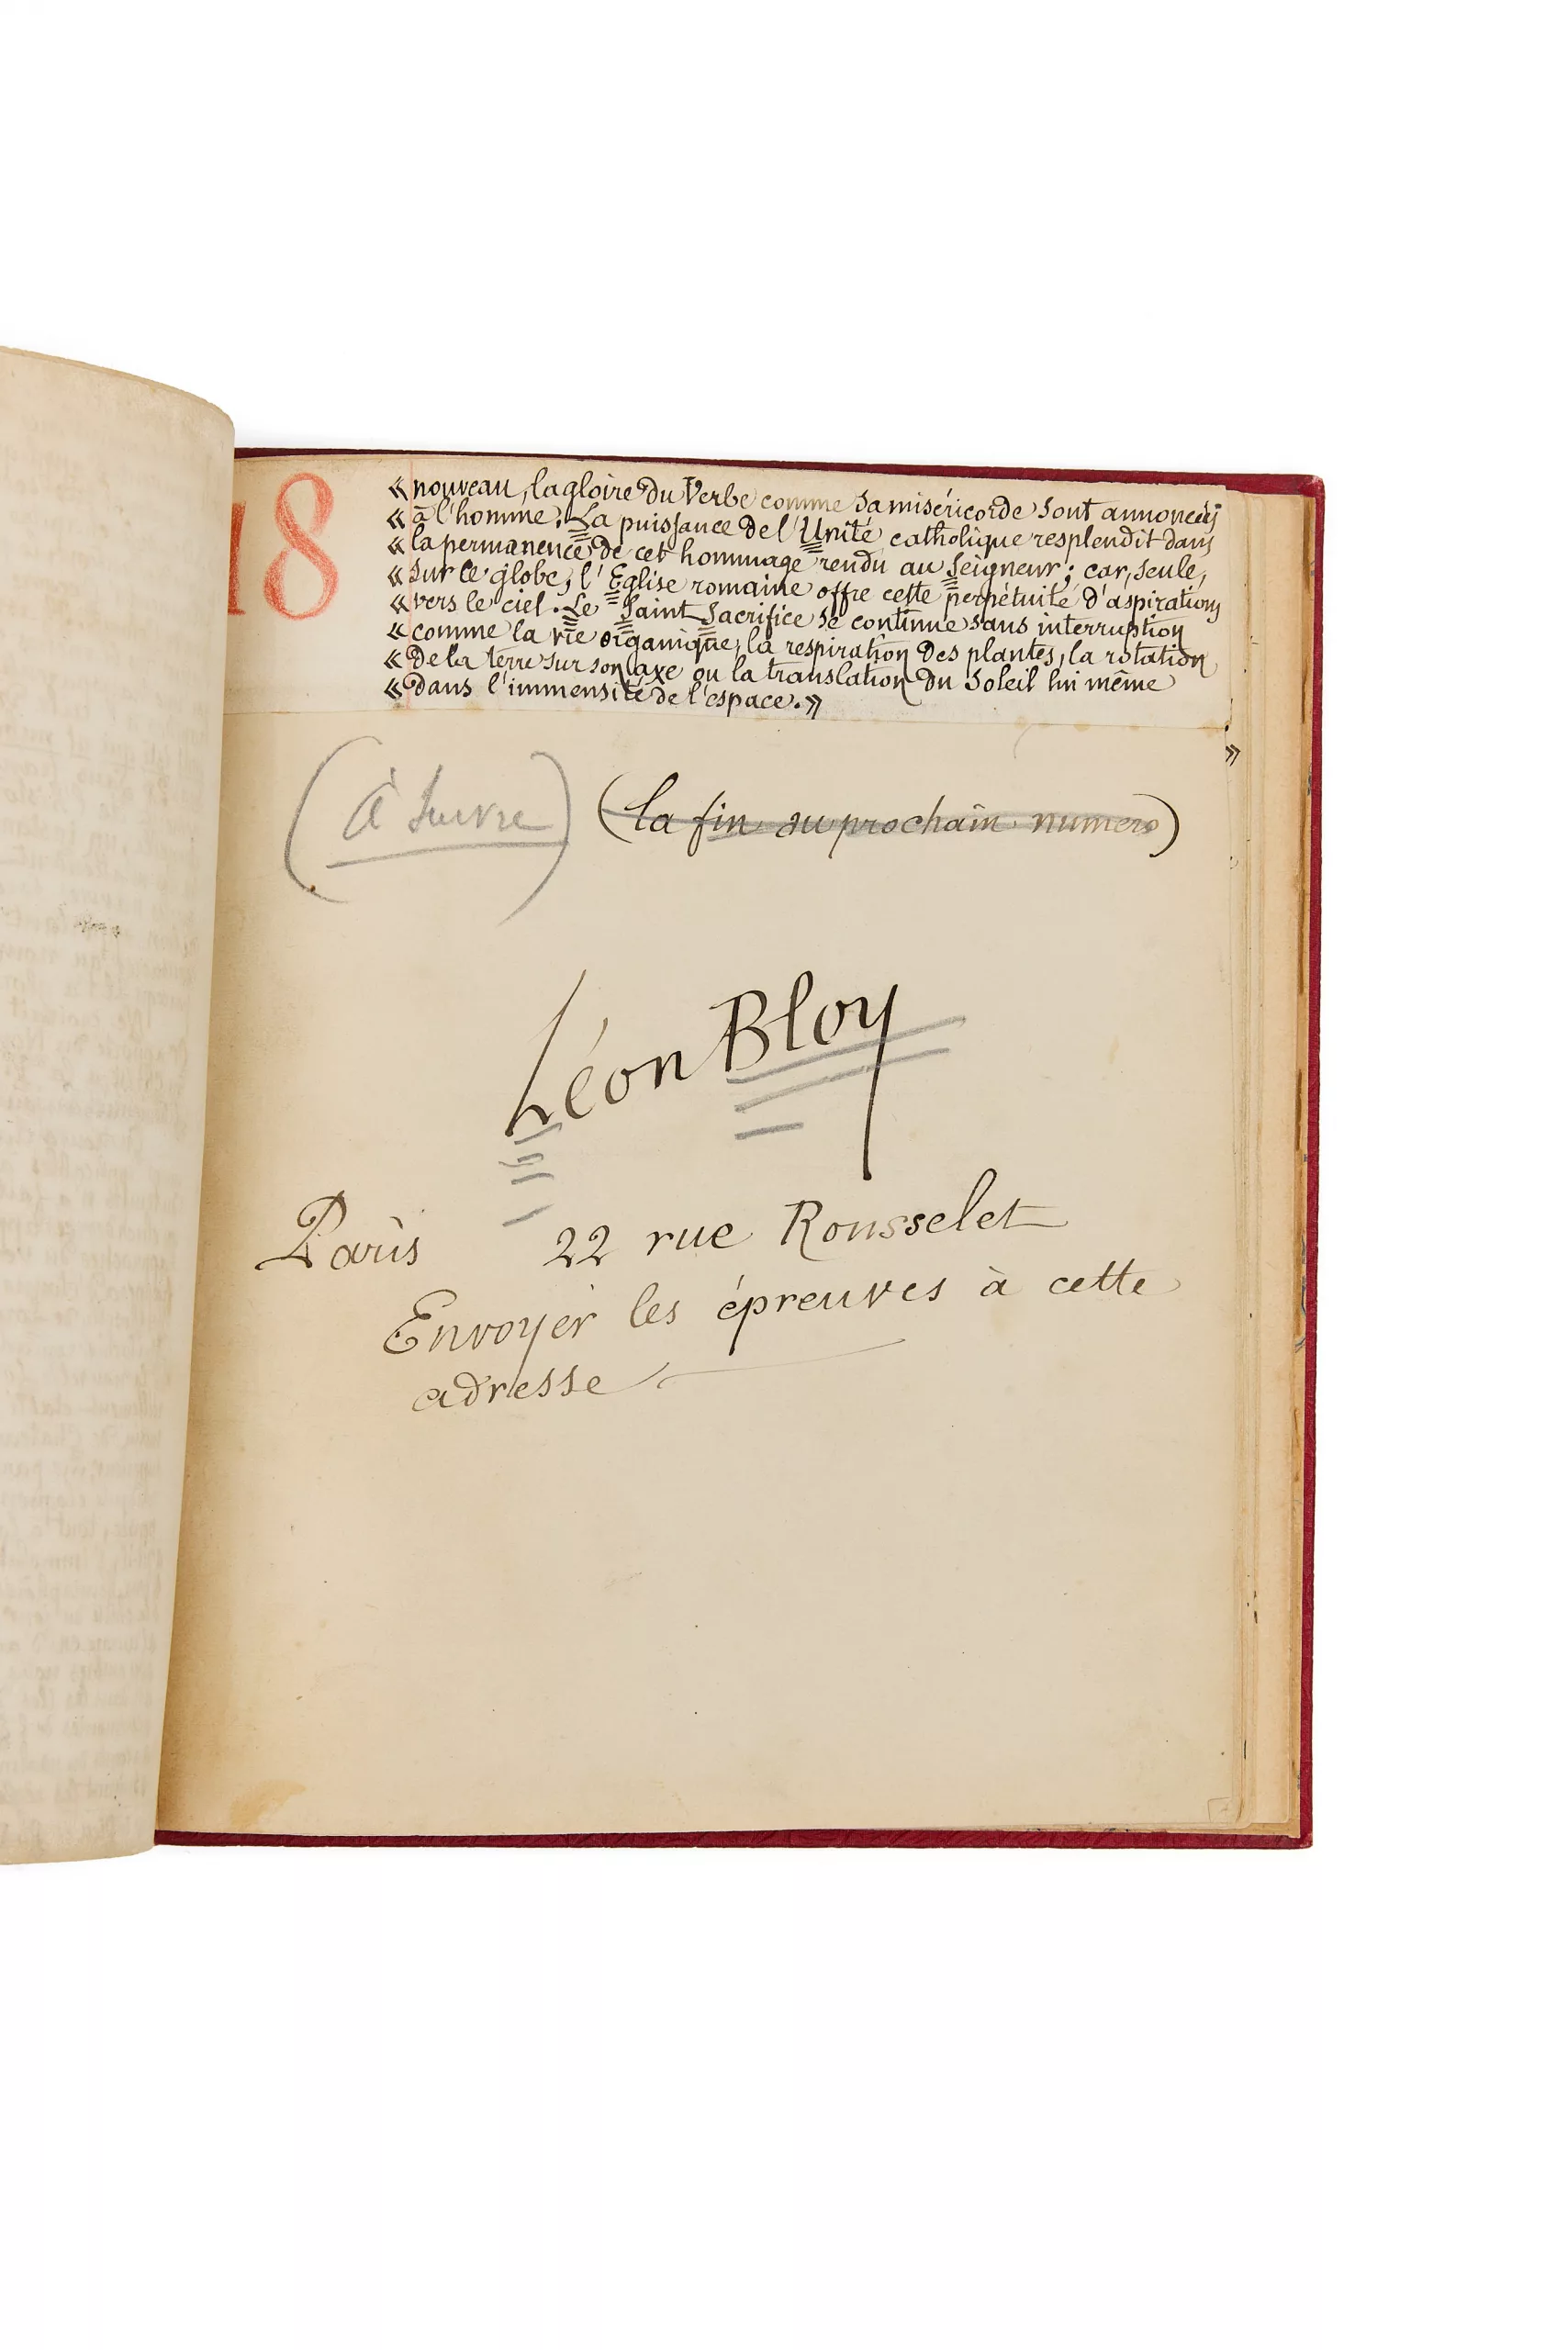 18
« nouveau, la gloire du Verbe comme sa miséricorde sont annoncées
« à l'homme. La puissance de l'Unité catholique resplendit dans
« la permanence de cet hommage rendu au Seigneur ; car, seule,
« sur ce globe, l'Eglise romaine offre cette perpétuité d'aspirations
« vers le ciel. Le Saint Sacrifice se continue sans interruption
« comme la vie organique, la respiration des plantes, la rotation
« de la terre sur son axe ou la translation du Soleil lui même
« dans l'immensité de l'espace. »
»
(à suivre) (la fin au prochain numero)
Léon Bloy
Paris 22 rue Rousselet
Envoyer les épreuves à cette
adresse